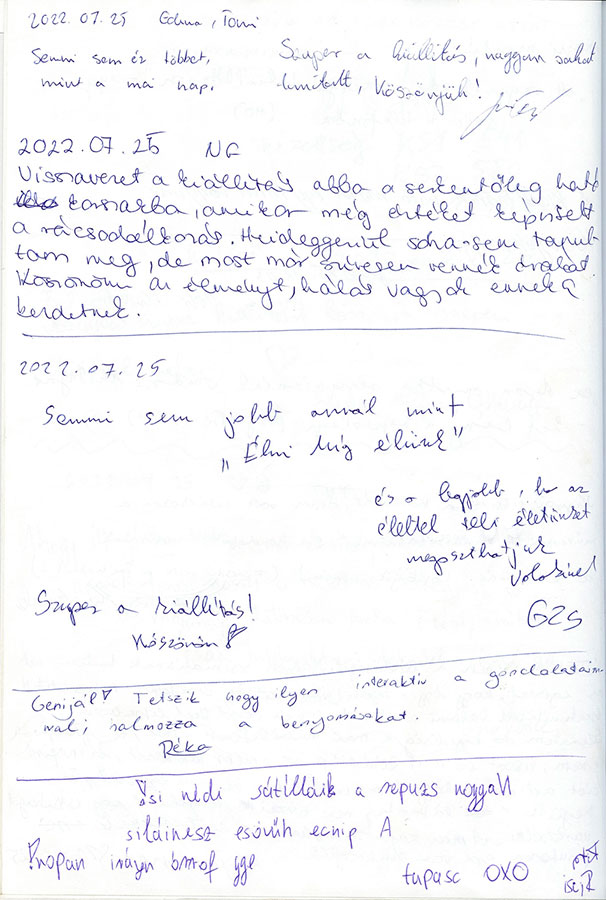 2022.07.25 Edina, Tomi
Semmi sem ér többet,
mint a mai nap.
Szuper a kiállítás, nagyon sokat
tanított, köszönjük!
2022.07.25 NG
Visszavezet a kiállítás abba a serkentőleg ható
korszakba, amikor még értéket képviselt
a rácsodálkozás. Heideggerrel soha sem
tam meg, de most már szívesen vennék órákat.
Köszönöm az élményt, hálás vagyok ennek a
kezdetnek.
2022.07.25
Semmi sem jobb annál mint
„Élni míg élünk"
és a legjobb, ha az
élettel teli életünket
megoszthatjuk
valakivel
Szuper a kiállítás!
Köszönöm
GZs
Geniját! Tetszik hogy ilyen interaktív a gondolataim-
mal; halmozza a benyomásokat.
Réka
!ősi nédi sátilláik a repuzs noygaN
siláinesz esövűh ecnip A
!napon iráyn örrof yge
tupasc OXO